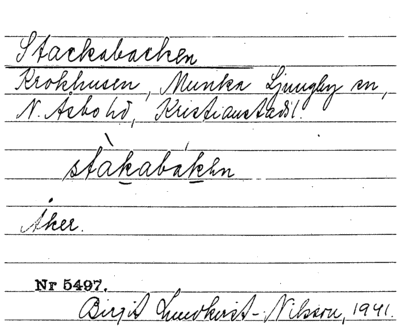 Stackabacken
Krokhusen, Munka Ljungby sn,
N. Åsbo hd, Kristianstads l.
stàkabáken
Åker.
Nr 5497.
Birgit Lundkvist-Nilsson, 1941.